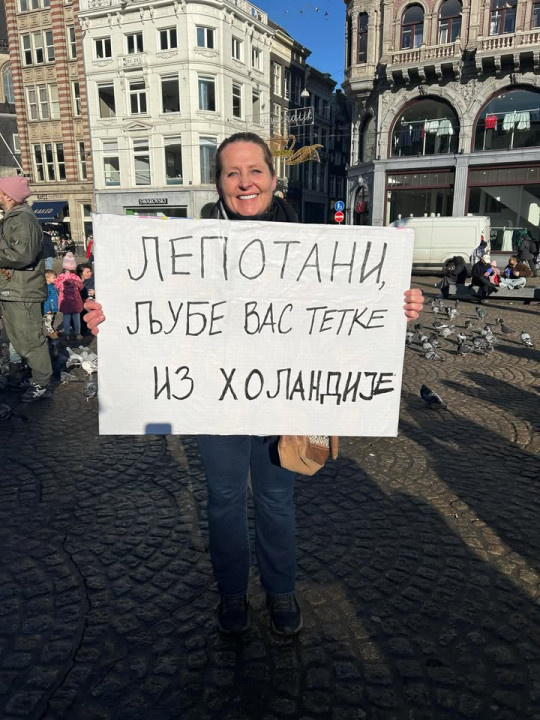 ЛЕПОТАНИ,
ЉУБЕ ВАС ТЕТКЕ
ИЗ ХОЛАНДИЈЕ
SWAROVSKI